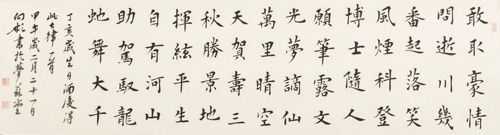 敢取豪情
問逝川幾
番起落笑
風煙科登
博士隨人
願筆露文
光夢謫仙
萬里晴空
天賀壽三
秋勝景地
揮絃平生
自有河山
助駕馭龍
虵舞大千
丁亥歲生日酒後得
此七律一首
甲午歲二月二十一日
向彬書於